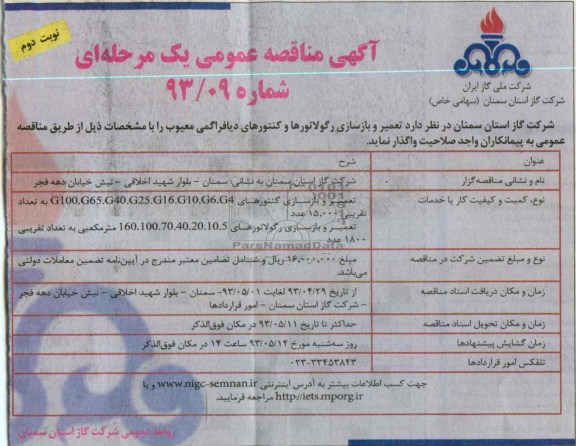 نوبت دوم
آگهی مناقصه عمومی یک مرحله‌ای
شماره ۹۳/۰۹
شرکت ملی گاز ایران
شرکت گاز استان سمنان (سهامی خاص)
شرکت گاز استان سمنان در نظر دارد تعمیر و بازسازی رگولاتورها و کنتورهای دیافراگمی معیوب را با مشخصات ذیل از طریق مناقصه
عمومی به پیمانکاران واجد صلاحیت واگذار نماید.
عنوان شرح
نام و نشانی مناقصه‌گزار شرکت گاز استان سمنان به نشانی: سمنان – بلوار شهید اخلاقی – نبش خیابان دهه فجر
نوع، کمیت و کیفیت کار یا خدمات تعمیر و بازسازی کنتورهای G100.G65.G40.G25.G16.G10.G6.G4 به تعداد
تقریبی ۱۵,۰۰۰ عدد
تعمیر و بازسازی رگولاتورهای 160.100.70.40.20.10.5 مترمکعبی به تعداد تقریبی
۱۸۰۰ عدد
نوع و مبلغ تضمین شرکت در مناقصه مبلغ ۱۶,۰۰۰,۰۰۰ ریال و شامل تضامین معتبر مندرج در آیین‌نامه تضمین معاملات دولتی
می‌باشد.
زمان و مکان دریافت اسناد مناقصه از تاریخ ۹۳/۰۴/۲۹ لغایت ۹۳/۰۵/۰۱- سمنان – بلوار شهید اخلاقی – نبش خیابان دهه فجر
– شرکت گاز استان سمنان – امور قراردادها
زمان و مکان تحویل اسناد مناقصه حداکثر تا تاریخ ۹۳/۰۵/۱۱ در مکان فوق‌الذکر
زمان گشایش پیشنهادها روز سه‌شنبه مورخ ۹۳/۰۵/۱۴ ساعت ۱۴ در مکان فوق‌الذکر
تلفکس امور قراردادها ۰۲۳-۳۳۴۵۳۸۴۳
جهت کسب اطلاعات بیشتر به آدرس اینترنتی www.nigc-semnan.ir و یا
http://iets.mporg.ir مراجعه فرمایید.
روابط عمومی شرکت گاز استان سمنان
ParsNamadData